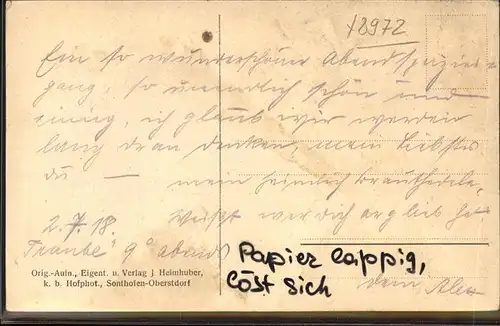 18972
Ein so wunderschöner Abendspazier=
gang, so unendlich schön und
innig, ich glaub wir werden
lang dran denken, mein Liebstes
du — mein heimlich
2.7.18. Weißt wer dich arg lieb hat
"Traube" 9° abends
Orig.-Aufn., Eigent. u. Verlag j. Heimhuber,
k. b. Hofphot., Sonthofen-Oberstdorf
Papier lappig,
löst sich
dein Alex